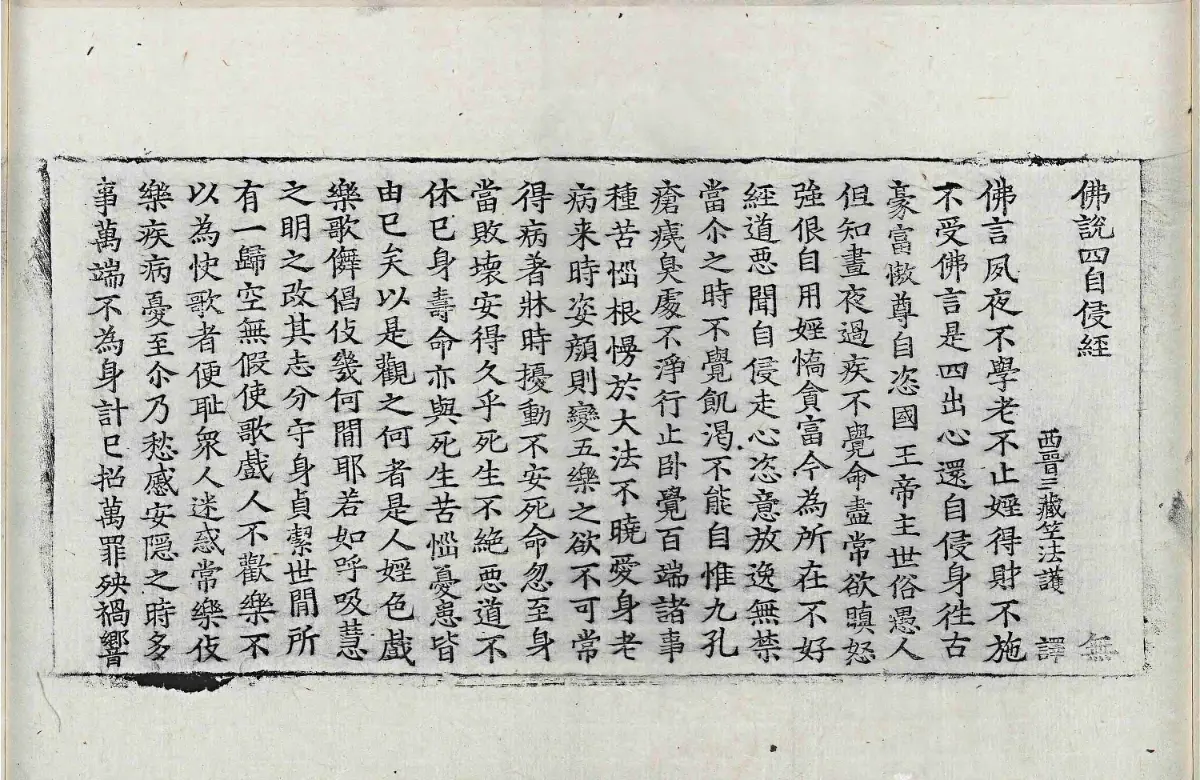 佛說四自侵經 無
西晉三藏竺法護 譯
佛言夙夜不學老不止婬得財不施
不受佛言是四出心還自侵身往古
豪富憿尊自恣國王帝主世俗愚人
但知晝夜過疾不覺命盡常欲瞋怒
強佷自用婬憍貪富今為所在不好
經道惡聞自侵走心恣意放逸無禁
當尒之時不覺飢渴不能自惟九孔
瘡㾗臭處不淨行止卧覺百端諸事
種苦惱根慢於大法不曉愛身老
病来時姿顏則變五樂之欲不可常
得病著牀時擾動不安死命忽至身
當敗壞安得久乎死生不絕惡道不
休已身壽命亦與死生苦惱憂患皆
由已矣以是觀之何者是人婬色戲
樂歌儛倡伎幾何閒耶若如呼吸慧
之明之改其志分守身貞潔世閒所
有一歸空無假使歌戲人不歡樂不
以為忮歌者便耻衆人迷惑常樂伎
樂疾病憂至尒乃愁慼安隱之時多
事萬端不為身計已招萬罪殃禍響